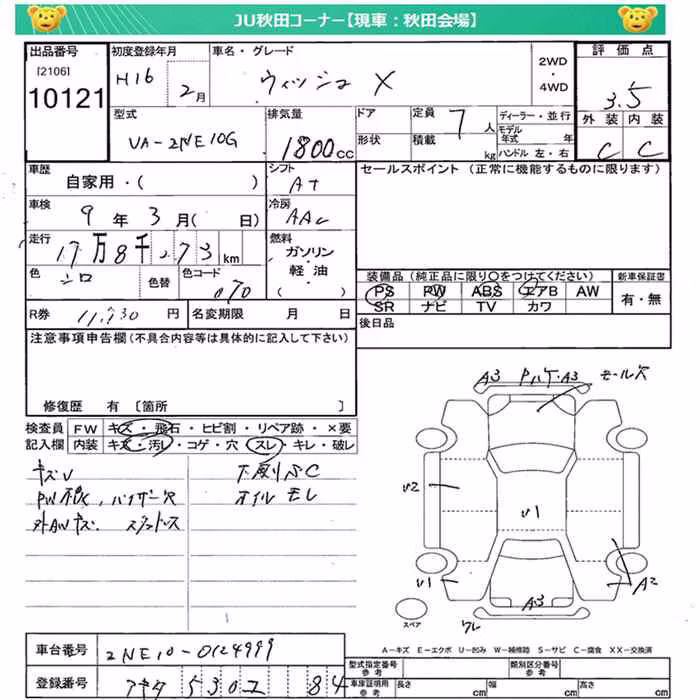 JU秋田コーナー【現車：秋田会場】
出品番号 初度登録年月 車名・グレード 2WD・4WD 評価点
[2106]
10121
H16 2月
ウィッシュ X
3.5
型式 排気量 ドア 定員 7人 ディーラー・並行 外装 内装
UA-ZNE10G 1800cc
形状 積載 kg モデル年式 年
ハンドル 左・右
C C
車歴 シフト セールスポイント（正常に機能するものに限ります）
自家用・( ) AT
車検 冷房
9年3月( 日) AAC
走行 燃料
17万8千273km
ガソリン・軽油・( )
色 色替 色コード
シロ 070
装備品（純正品に限り○をつけてください） 新車保証書
PS PW ABS エアB AW 有・無
SR ナビ TV カワ
R券 11,730円 名変期限 月 日
後日品
注意事項申告欄（不具合内容等は具体的に記入して下さい）
修復歴 有 〔箇所 〕
検査員記入欄 FW キズ・飛石・ヒビ割・リペア跡・×要
内装 キズ・汚レ・コゲ・穴・スレ・キレ・破レ
キズU 下廻りSC
PW不良、バイザー穴 オイルモレ
外AWキズ、スタッドレス
A3 Pハゲ・A3 モール穴
U2
U1
U1
A2
A3
ワレ
スペア
A－キズ E－エクボ U－凹み W－補修跡 S－サビ C－腐食 XX－交換済
車台番号 ZNE10-0124999
登録番号 アキタ 530ユ 84
型式指定番号 参考 類別区分番号 参考
車庫証明用 参考 長さ cm 幅 cm 高さ cm